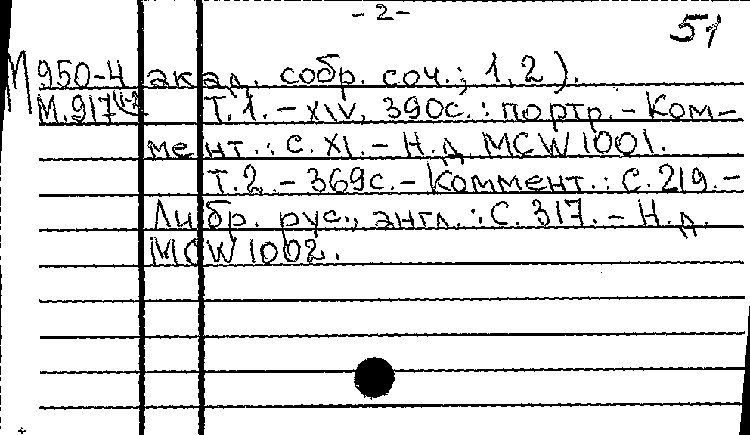 - 2 -
51
М 950-4 акад. собр. соч.; 1, 2 ).
М. 917 Т. 1. - XIV, 390с. : портр. - Ком-
мент.: с. XI. - Н.д. MCW 1001.
Т. 2. - 369с. - Коммент.: с. 219. -
Либр. рус., англ.: с. 317. - Н.д.
MCW 1002.